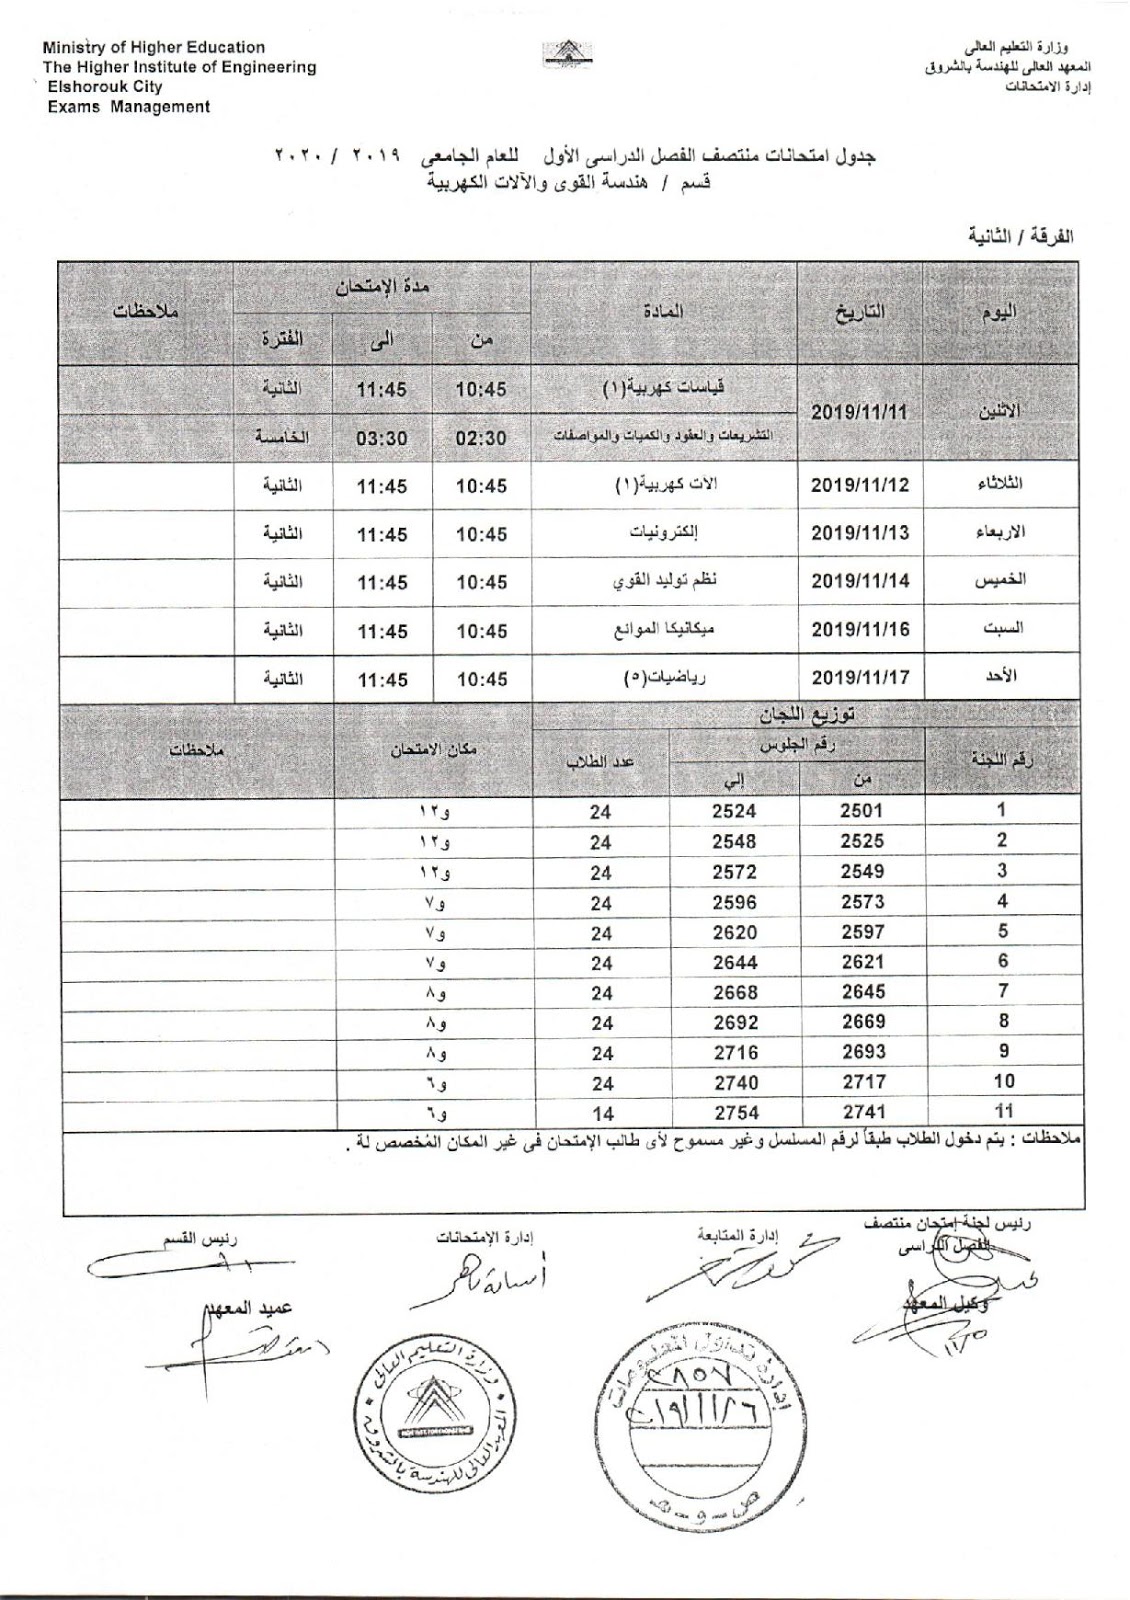 Ministry of Higher Education
The Higher Institute of Engineering
Elshorouk City
Exams Management
وزارة التعليم العالى
المعهد العالى للهندسة بالشروق
إدارة الامتحانات
جدول امتحانات منتصف الفصل الدراسى الأول للعام الجامعى ٢٠١٩ / ٢٠٢٠
قسم / هندسة القوى والآلات الكهربية
الفرقة / الثانية
اليوم التاريخ المادة مدة الإمتحان ملاحظات
من الى الفترة
الاثنين 2019/11/11 قياسات كهربية(١) 10:45 11:45 الثانية
التشريعات والعقود والكميات والمواصفات 02:30 03:30 الخامسة
الثلاثاء 2019/11/12 الات كهربية(١) 10:45 11:45 الثانية
الاربعاء 2019/11/13 إلكترونيات 10:45 11:45 الثانية
الخميس 2019/11/14 نظم توليد القوي 10:45 11:45 الثانية
السبت 2019/11/16 ميكانيكا الموائع 10:45 11:45 الثانية
الأحد 2019/11/17 رياضيات(٥) 10:45 11:45 الثانية
توزيع اللجان
رقم اللجنة رقم الجلوس عدد الطلاب مكان الامتحان ملاحظات
من إلي
1 2501 2524 24 و١٢
2 2525 2548 24 و١٢
3 2549 2572 24 و١٢
4 2573 2596 24 و٧
5 2597 2620 24 و٧
6 2621 2644 24 و٧
7 2645 2668 24 و٨
8 2669 2692 24 و٨
9 2693 2716 24 و٨
10 2717 2740 24 و٦
11 2741 2754 14 و٦
ملاحظات : يتم دخول الطلاب طبقاً لرقم المسلسل وغير مسموح لأى طالب الإمتحان فى غير المكان المُخصص لة .
رئيس لجنة إمتحان منتصف
الفصل الدراسى
إدارة المتابعة
إدارة الإمتحانات
رئيس القسم
وكيل المعهد
عميد المعهد
وزارة التعليم العالى
المعهد العالى للهندسة بالشروق
إدارة تداول المعلومات
ص - و - هـ